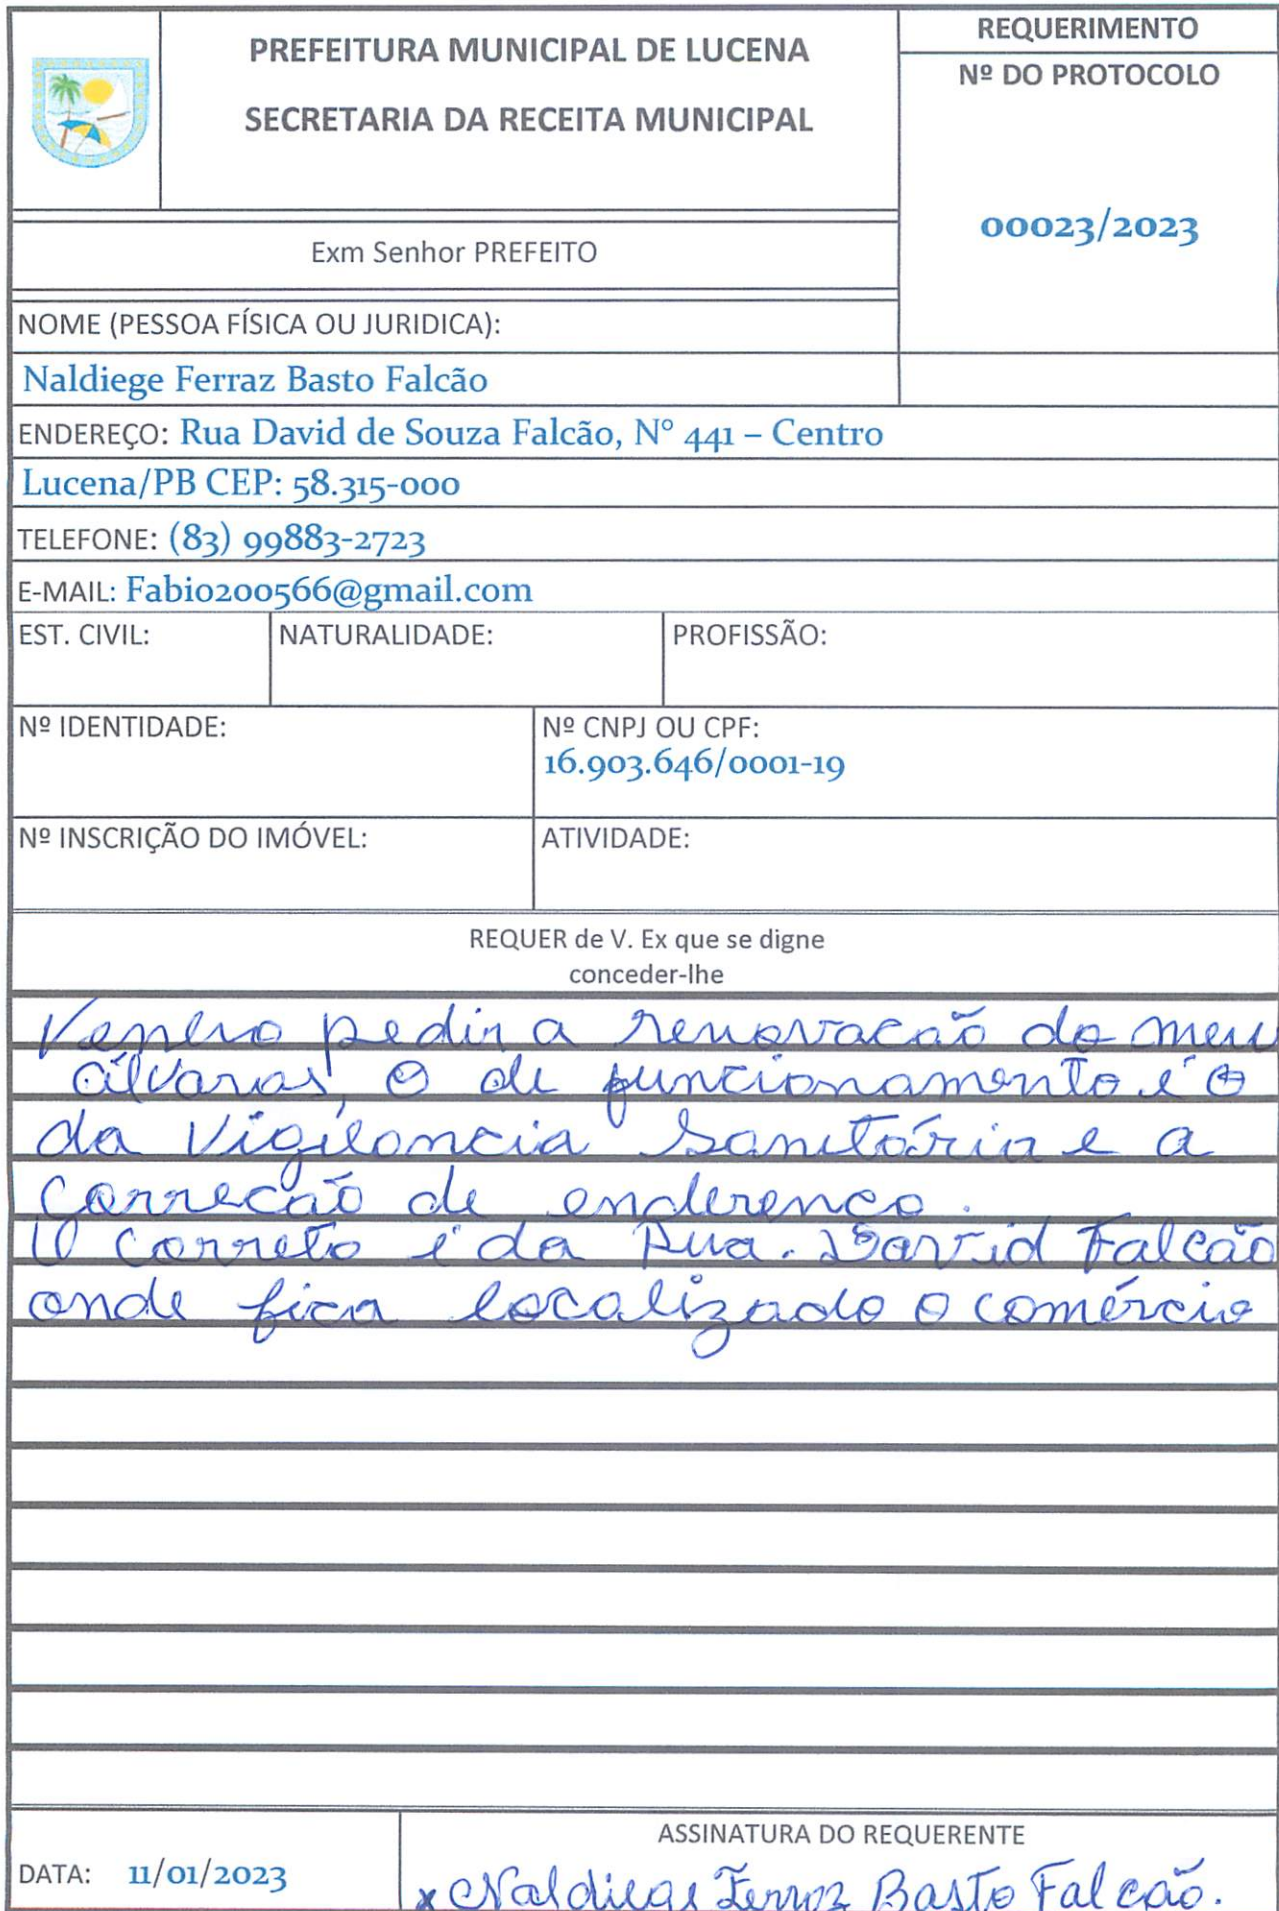 PREFEITURA MUNICIPAL DE LUCENA
SECRETARIA DA RECEITA MUNICIPAL
REQUERIMENTO
Nº DO PROTOCOLO
00023/2023
Exm Senhor PREFEITO
NOME (PESSOA FÍSICA OU JURIDICA):
Naldiege Ferraz Basto Falcão
ENDEREÇO: Rua David de Souza Falcão, N° 441 – Centro
Lucena/PB CEP: 58.315-000
TELEFONE: (83) 99883-2723
E-MAIL: Fabio200566@gmail.com
EST. CIVIL: NATURALIDADE: PROFISSÃO:
Nº IDENTIDADE: Nº CNPJ OU CPF:
16.903.646/0001-19
Nº INSCRIÇÃO DO IMÓVEL: ATIVIDADE:
REQUER de V. Ex que se digne
conceder-lhe
Venho pedir a renovacaõ do meu
álvaras, o de funcionamento e o
da Vigiloncia Sanitária e a
Correcaõ de enderenco.
O Correto é da Rua. David Falcão
onde fica localizado o comércio
DATA: 11/01/2023
ASSINATURA DO REQUERENTE
x Naldiege Ferraz Basto Falcaõ.